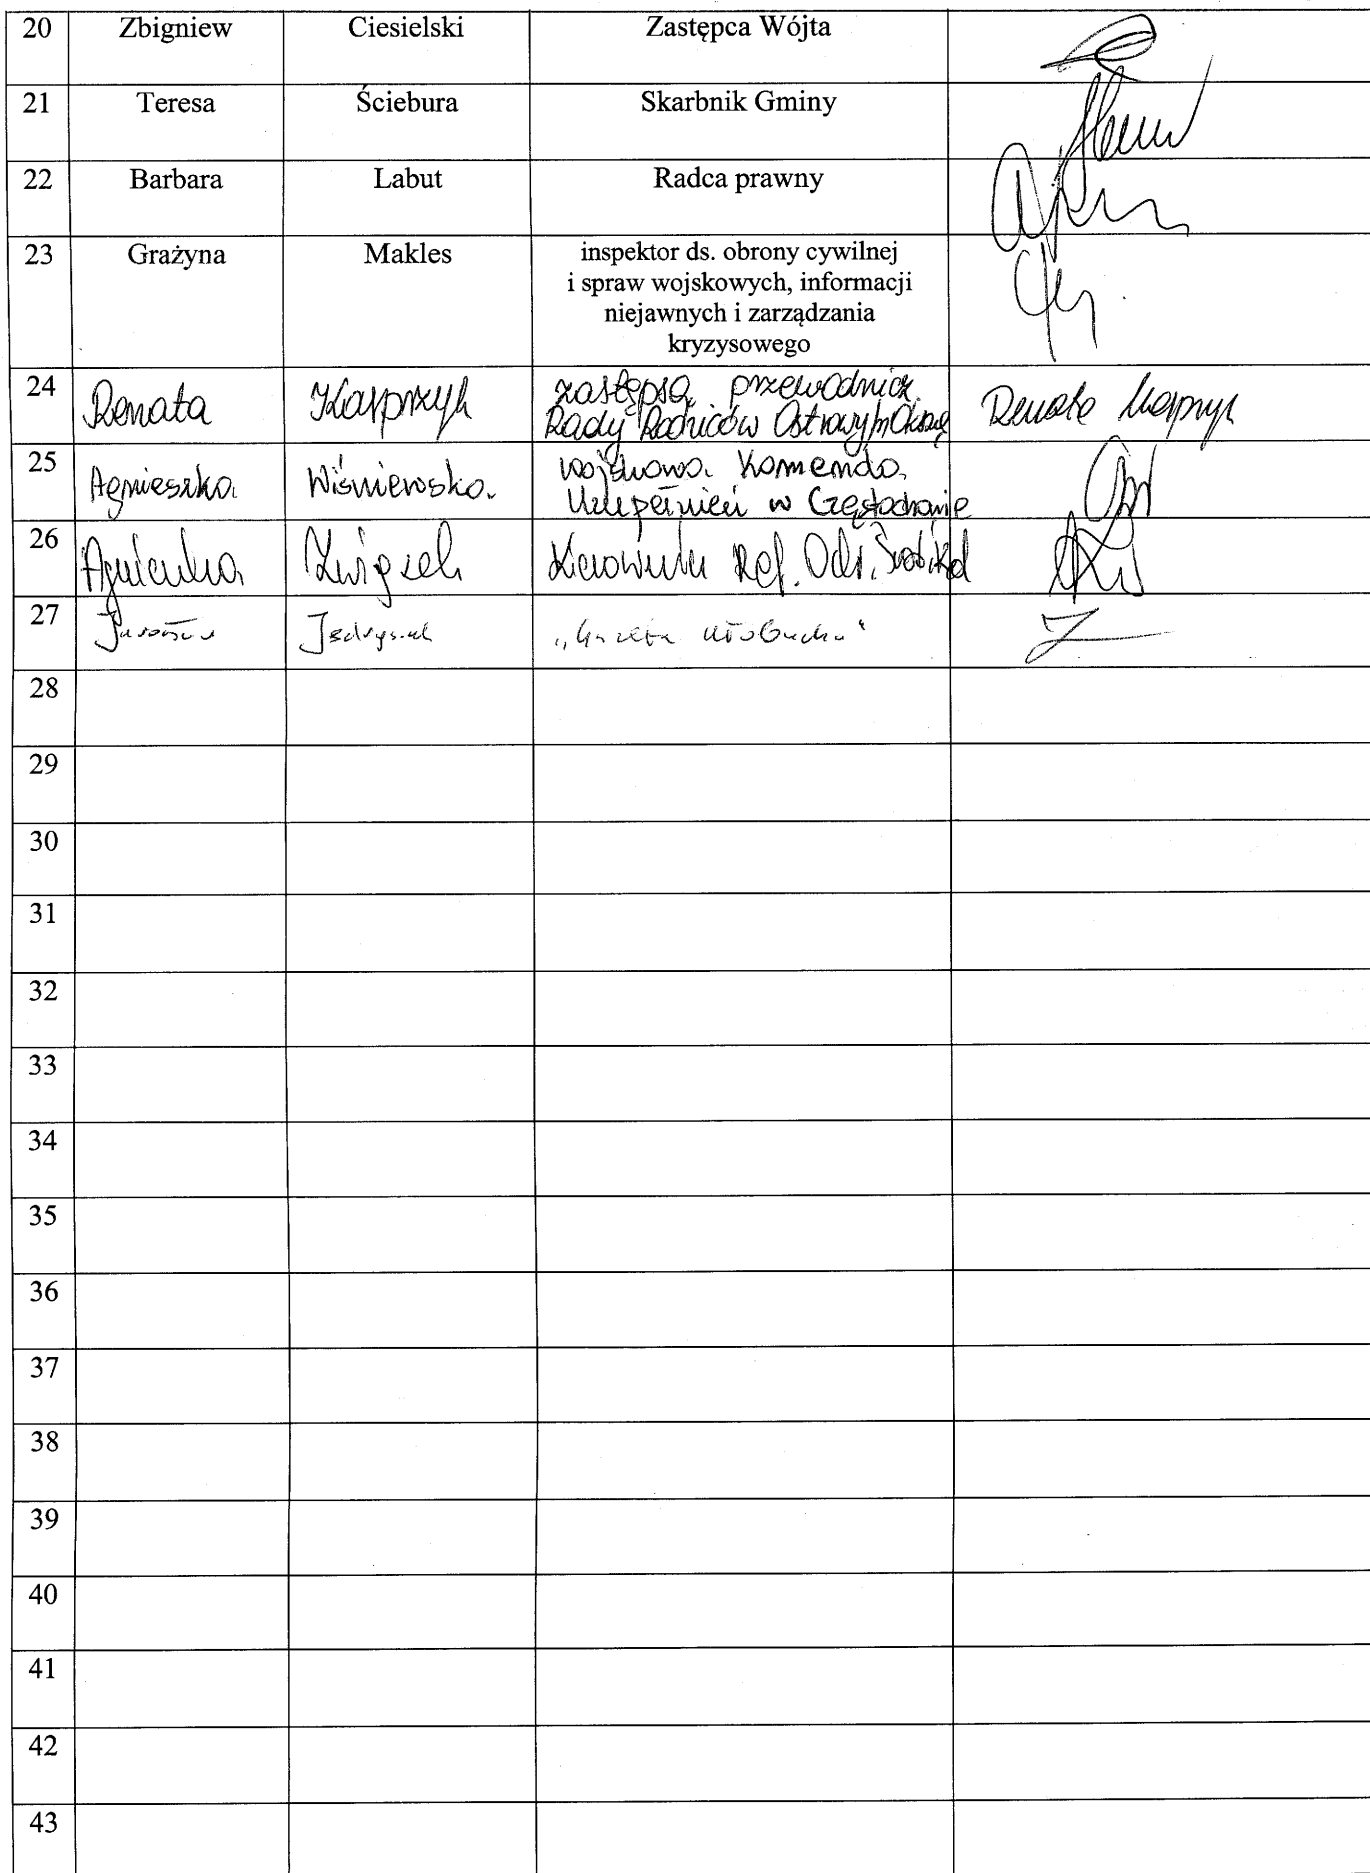 20 Zbigniew Ciesielski Zastępca Wójta
21 Teresa Ściebura Skarbnik Gminy
22 Barbara Labut Radca prawny
23 Grażyna Makles inspektor ds. obrony cywilnej
i spraw wojskowych, informacji
niejawnych i zarządzania
kryzysowego
24 Renata Kasprzyk zastępsą przewodnicz. Renata Kasprzyk
Rady Rodziców
25 Agnieszka Wiśniewska Wojskowa Komenda
Uzupełnień w Częstochowie
26 Agnieszka Związek Kierownik Ref.
27
28
29
30
31
32
33
34
35
36
37
38
39
40
41
42
43